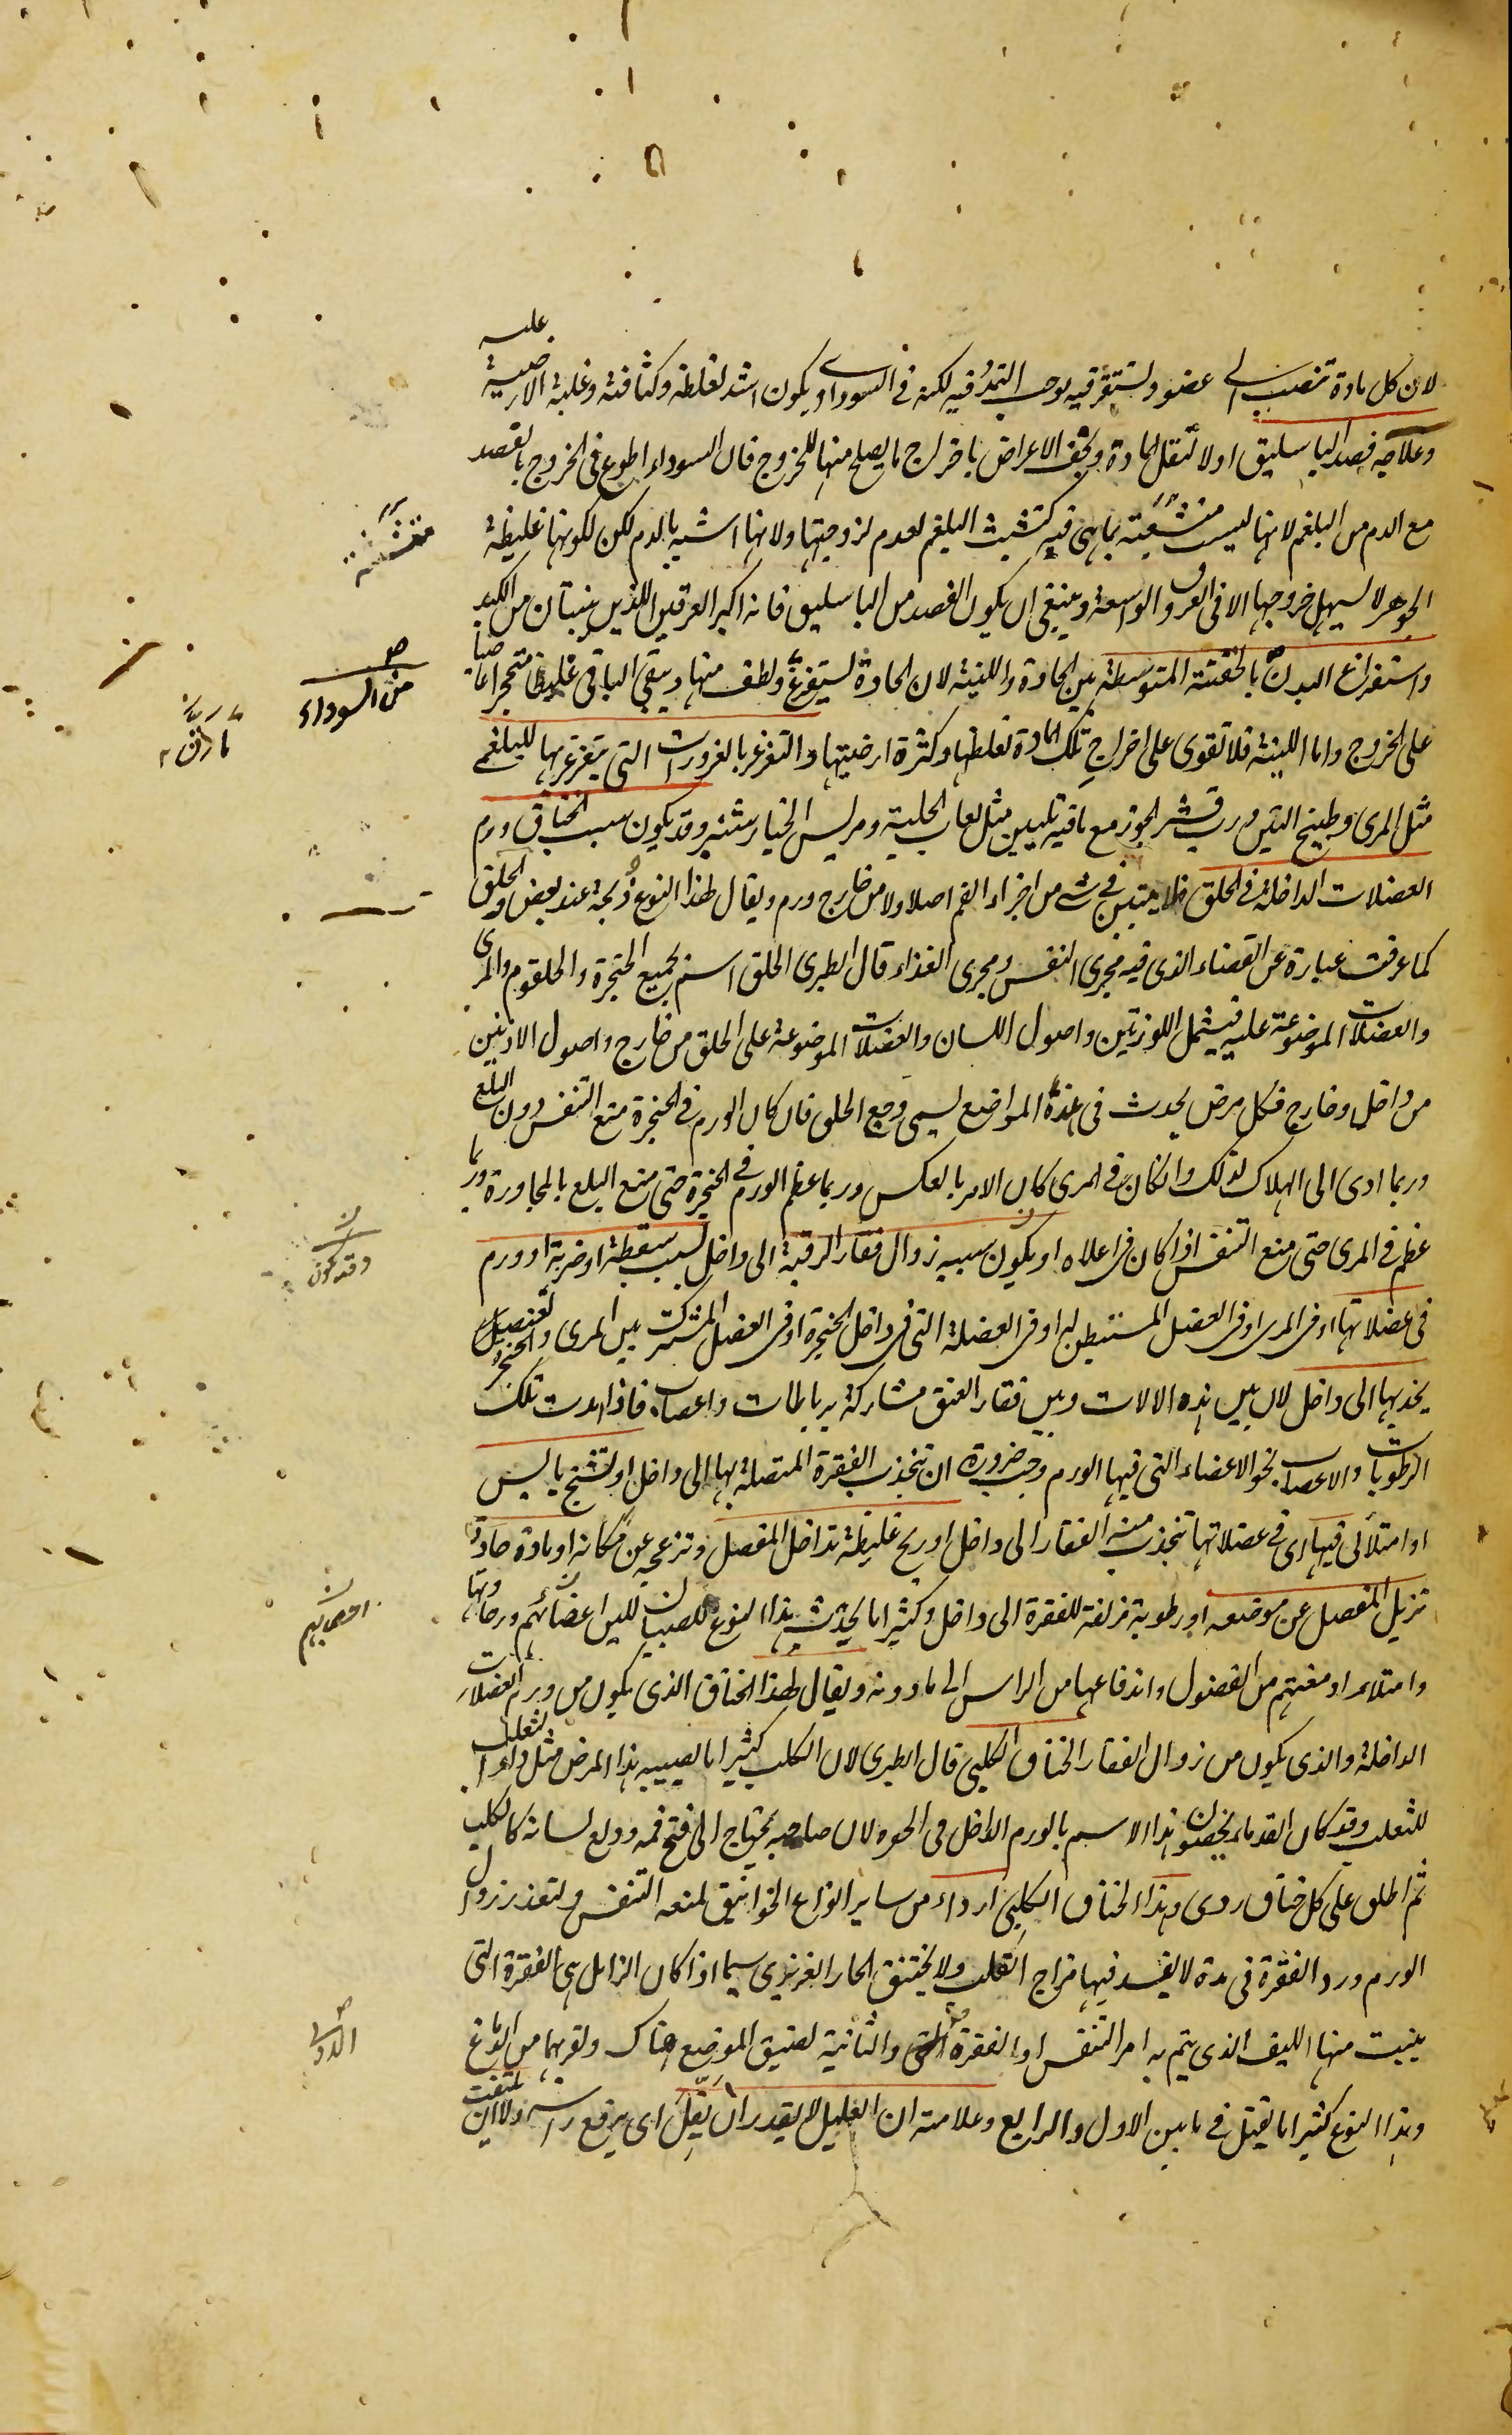 لان كل مادة تنصب الى عضو وتستقر فيه يوجب التمدد فيه لكنه فى السوداوى يكون اشد لغلظه وكثافته وغلبة الارضية عليه
وعلاجه فصد الباسليق اولا لتقل المادة وتخف الاعراض باخراج ما يصلح منها للخروج فان السوداء اطوع فى الخروج بالفصد
مع الدم من البلغم لانها ليست متشبثة بما هى فيه كتشبث البلغم لعدم لزوجتها ولانها اشبه بالدم لكن لكونها غليظة
الجوهر لا يسهل خروجها الا فى العروق الواسعة وينبغى ان يكون الفصد من الباسليق فانه اكبر العرقين اللذين ينبتان من الكبد
واستفراغ البدن بالحقنة المتوسطة بين الحادة واللينة لان الحادة تستفرغ ما لطف منها ويبقى الباقى غليظا متحجرا عاصيا
على الخروج واما اللينة فلا تقوى على اخراج تلك المادة لغلظها وكثرة ارضيتها والتغرغر بالغرورات التى يتغرغر بها للبلغمى
مثل المرى وطبيخ التين ورب قشر الجوز مع ما فيه تليين مثل لعاب الحلبة ومريس الخيارشنبر وقد يكون سبب الخناق ورم
العضلات الداخلة فى الحلق فلا يتبين فى شئ من اجزاء الفم اصلا ولا من خارج ورم ويقال لهذا النوع ذبحة عند بعض والحلق
كما عرفت عبارة عن الفضاء الذى فيه مجرى النفس ومجرى الغذاء قال الطبرى الحلق اسم لجميع الحنجرة والحلقوم والمرى
والعضلات الموضوعة عليه فيشمل اللوزتين واصول اللسان والعضلات الموضوعة على الحلق من خارج واصول الاذنين
من داخل وخارج فكل مرض يحدث فى هذه المواضع يسمى وجع الحلق فان كان الورم فى الحنجرة منع التنفس دون البلع
وربما ادى الى الهلاك لذلك وان كان فى المرى كان الامر بالعكس وربما عظم الورم فى الحنجرة حتى منع البلع بالمجاورة وربما
عظم فى المرى حتى منع التنفس اذا كان فى اعلاه او يكون سببه زوال فقار الرقبة الى داخل بسبب سقطة او ضربة او ورم
فى عضلاتها او فى المرى او فى العضل المستبطن له او فى العضلة التى فى داخل الحنجرة او فى العضل المشترك بين المرى والحنجرة
يجذبها الى داخل لان بين هذه الالات وبين فقار العنق مشاركة برباطات واعصاب فاذا تمددت تلك
الرطوبات والاعصاب نحو الاعضاء التى فيها الورم وجب ضرورة ان تنجذب الفقرة المتصلة بها الى داخل او تشنج يابس
او امتلائى فيها اى فى عضلاتها تنجذب منه الفقار الى داخل او ريح غليظة تداخل المفصل وتزعجه عن مكانه او مادة حادة
تزيل المفصل عن موضعه او رطوبة مزلقة للفقرة الى داخل وكثيرا ما يحدث هذا النوع للصبيان للين اعضائهم ورخاوتها
وامتلاء ادمغتهم من الفضول واندفاعها من الراس الى ما دونه ويقال لهذا الخناق الذى يكون من ورم العضلات
الداخلة والذى يكون من زوال الفقار الخناق الكلبى قال الطبرى لان الكلب كثيرا ما يصيبه هذا المرض مثل داء الثعلب
للثعلب وقد كان القدماء يخصون هذا الاسم بالورم الداخل فى الحنجرة لان صاحبه يحتاج الى فتح فمه وولع لسانه كالكلب
ثم اطلق على كل خناق ردى وهذا الخناق الكلبى اردأ من ساير انواع الخوانيق لمنعه التنفس ولتعذر زوال
الورم ورد الفقرة فى مدة لا يفسد فيها مزاج القلب ولا يختنق الحار الغريزى سيما اذا كان الزائل هى الفقرة التى
ينبت منها الليف الذى يتم به امر التنفس او الفقرة والثانية لضيق الموضع هناك ولقربهما من الدماغ
وهذا النوع كثيرا ما يقتل فى ما بين الاول والرابع وعلامته ان العليل لا يقدر ان يقل اى يرفع راسه ولا ان يلتفت
متشبثة
من السوداء
ما رق
وقد يكون
اعصابهم
الاولى